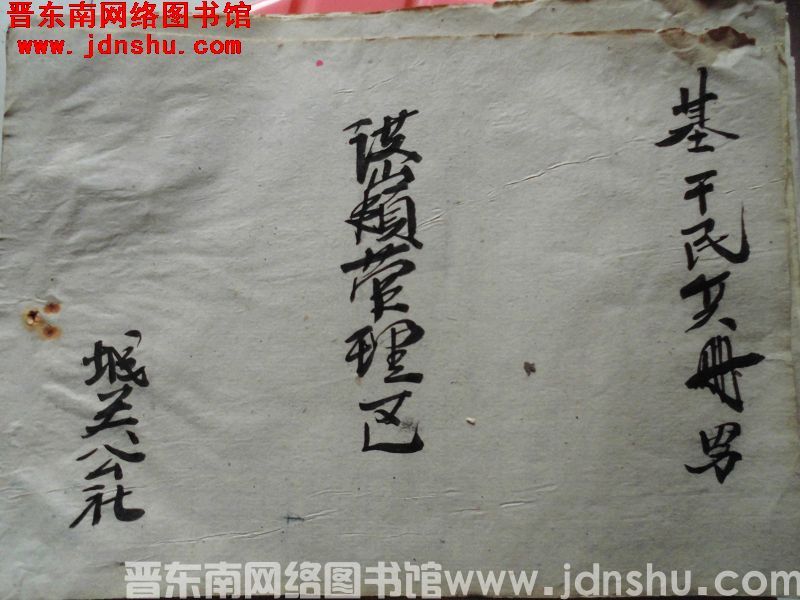 晋东南网络图书馆
www.jdnshu.com
基干民兵册 男
嶺管理区
城关公社
晋东南网络图书馆www.jdnshu.com